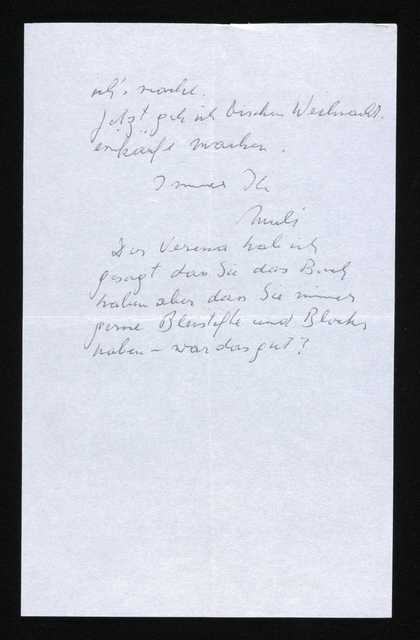 ich's mache.
Jetzt geh ich bischen Weihnacht.
einkäufe machen.
Immer Ih
Der Verena hab ich
gesagt das Sie das Buch
haben aber dass Sie immer
gerne Bleistifte und Blocks
haben – war das gut?